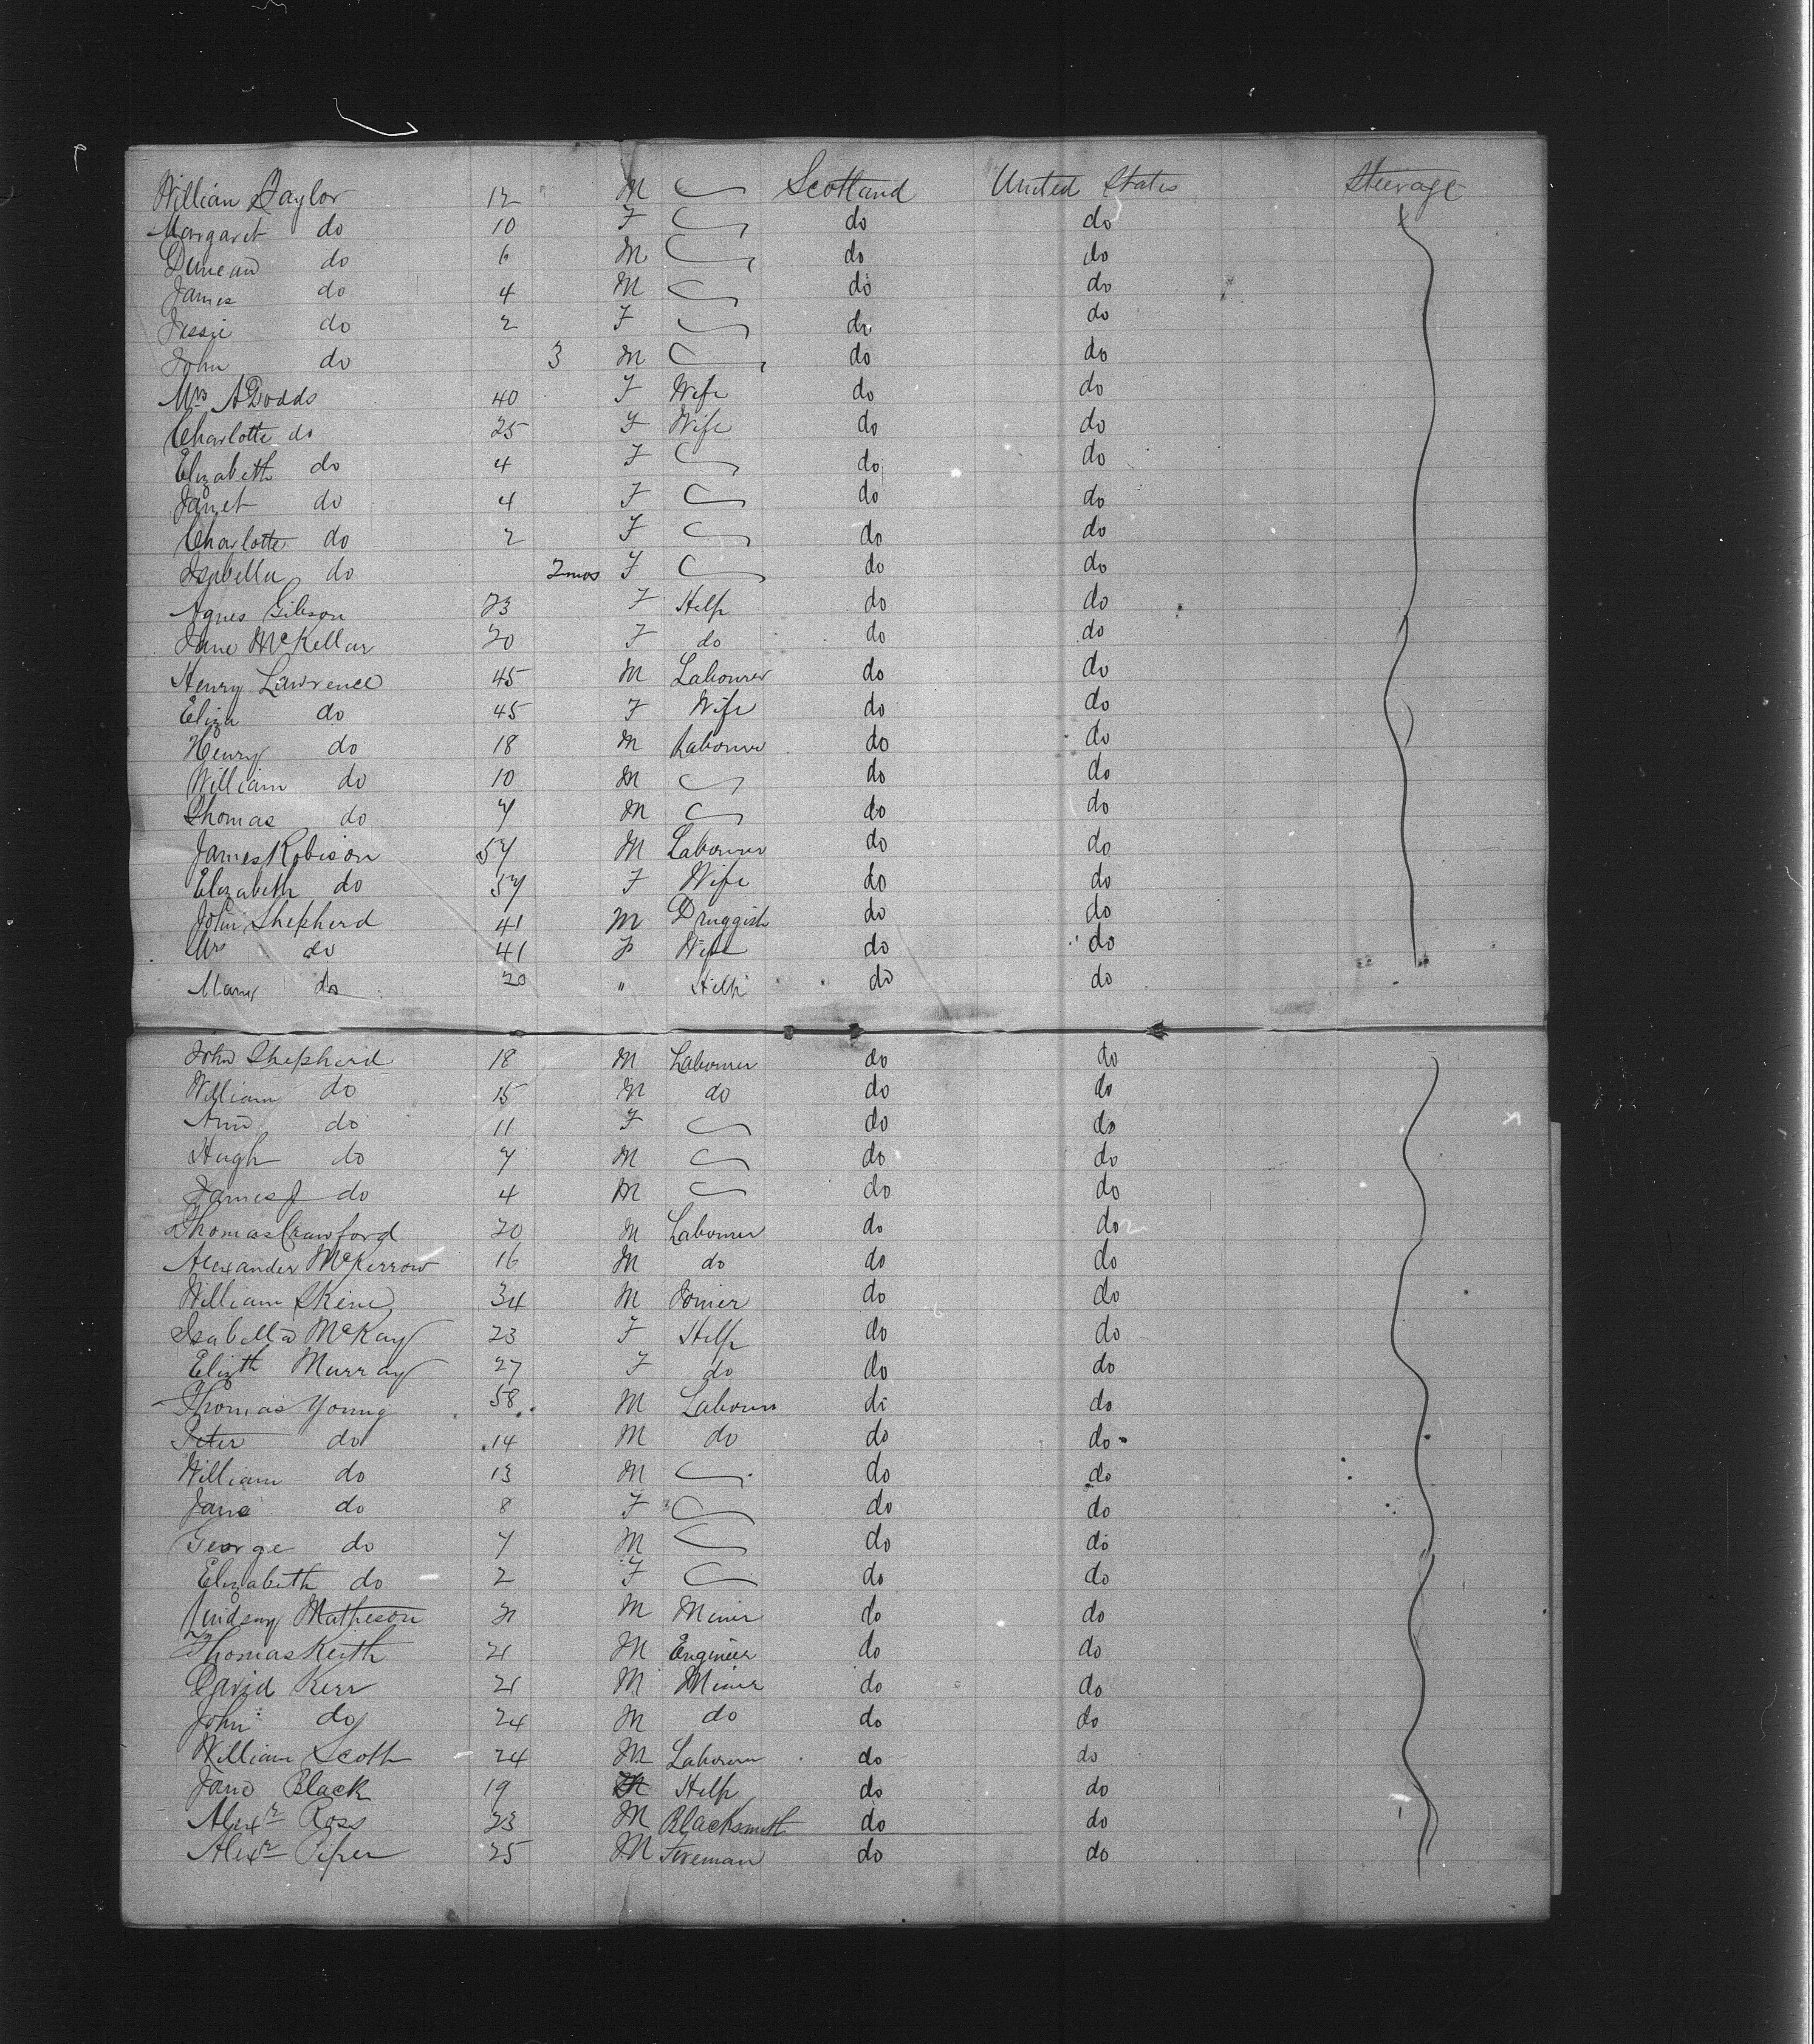 William Taylor 12 M Scotland United States Steerage
Margaret do 10 F do do
Duncan do 6 M do do
James do 4 M do do
Jessie do 2 F do do
John do 3 M do do
Mrs A Dodds 40 F Wife do do
Charlotte do 25 F Wife do do
Elizabeth do 4 F do do
Janet do 4 F do do
Charlotte do 2 F do do
Isabella do 2mos F do do
Agnes Gibson 23 F Help do do
Jane McKellar 20 F do do do
Henry Lawrence 45 M Labourer do do
Eliza do 45 F Wife do do
Henry do 18 M Labourer do do
William do 10 M do do
Thomas do 7 M do do
James Robison 57 M Labourer do do
Elizabeth do 57 F Wife do do
John Shepherd 41 M Druggist do do
Mrs do 41 F Wife do do
Mary do 20 " Help do do
John Shepherd 18 M Labourer do do
William do 15 M do do do
Ann do 11 F do do
Hugh do 7 M do do
James J do 4 M do do
Thomas Crawford 20 M Labourer do do
Alexander McKerrow 16 M do do do
William Skene 34 M Joiner do do
Isabella McKay 23 F Help do do
Elizth Murray 27 F do do do
Thomas Young 58 M Labourer do do
Peter do 14 M do do do
William do 13 M do do
Jane do 8 F do do
George do 7 M do do
Elizabeth do 2 F do do
Lindsay Matheson M Miner do do
Thomas Keith 21 M Engineer do do
David Kerr 21 M Miner do do
John do 24 M do do do
William Scott 24 M Labourer do do
Jane Black 19 Help do do
Alexr Ross 23 M Blacksmith do do
Alexr Piper 25 M Foreman do do